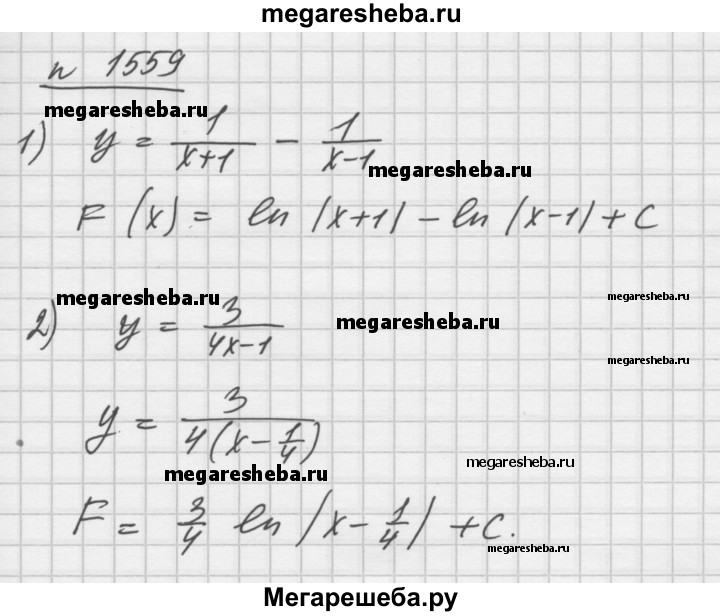 megaresheba.ru
n 1559
megaresheba.ru
1) y = 1/(x+1) - 1/(x-1)
megaresheba.ru
F(x) = ln|x+1| - ln|x-1| + C
megaresheba.ru
megaresheba.ru
2) y = 3/(4x-1)
megaresheba.ru
megaresheba.ru
y = 3/(4(x - 1/4))
megaresheba.ru
megaresheba.ru
F = 3/4 ln|x - 1/4| + C.
megaresheba.ru
Мегарешеба.ру